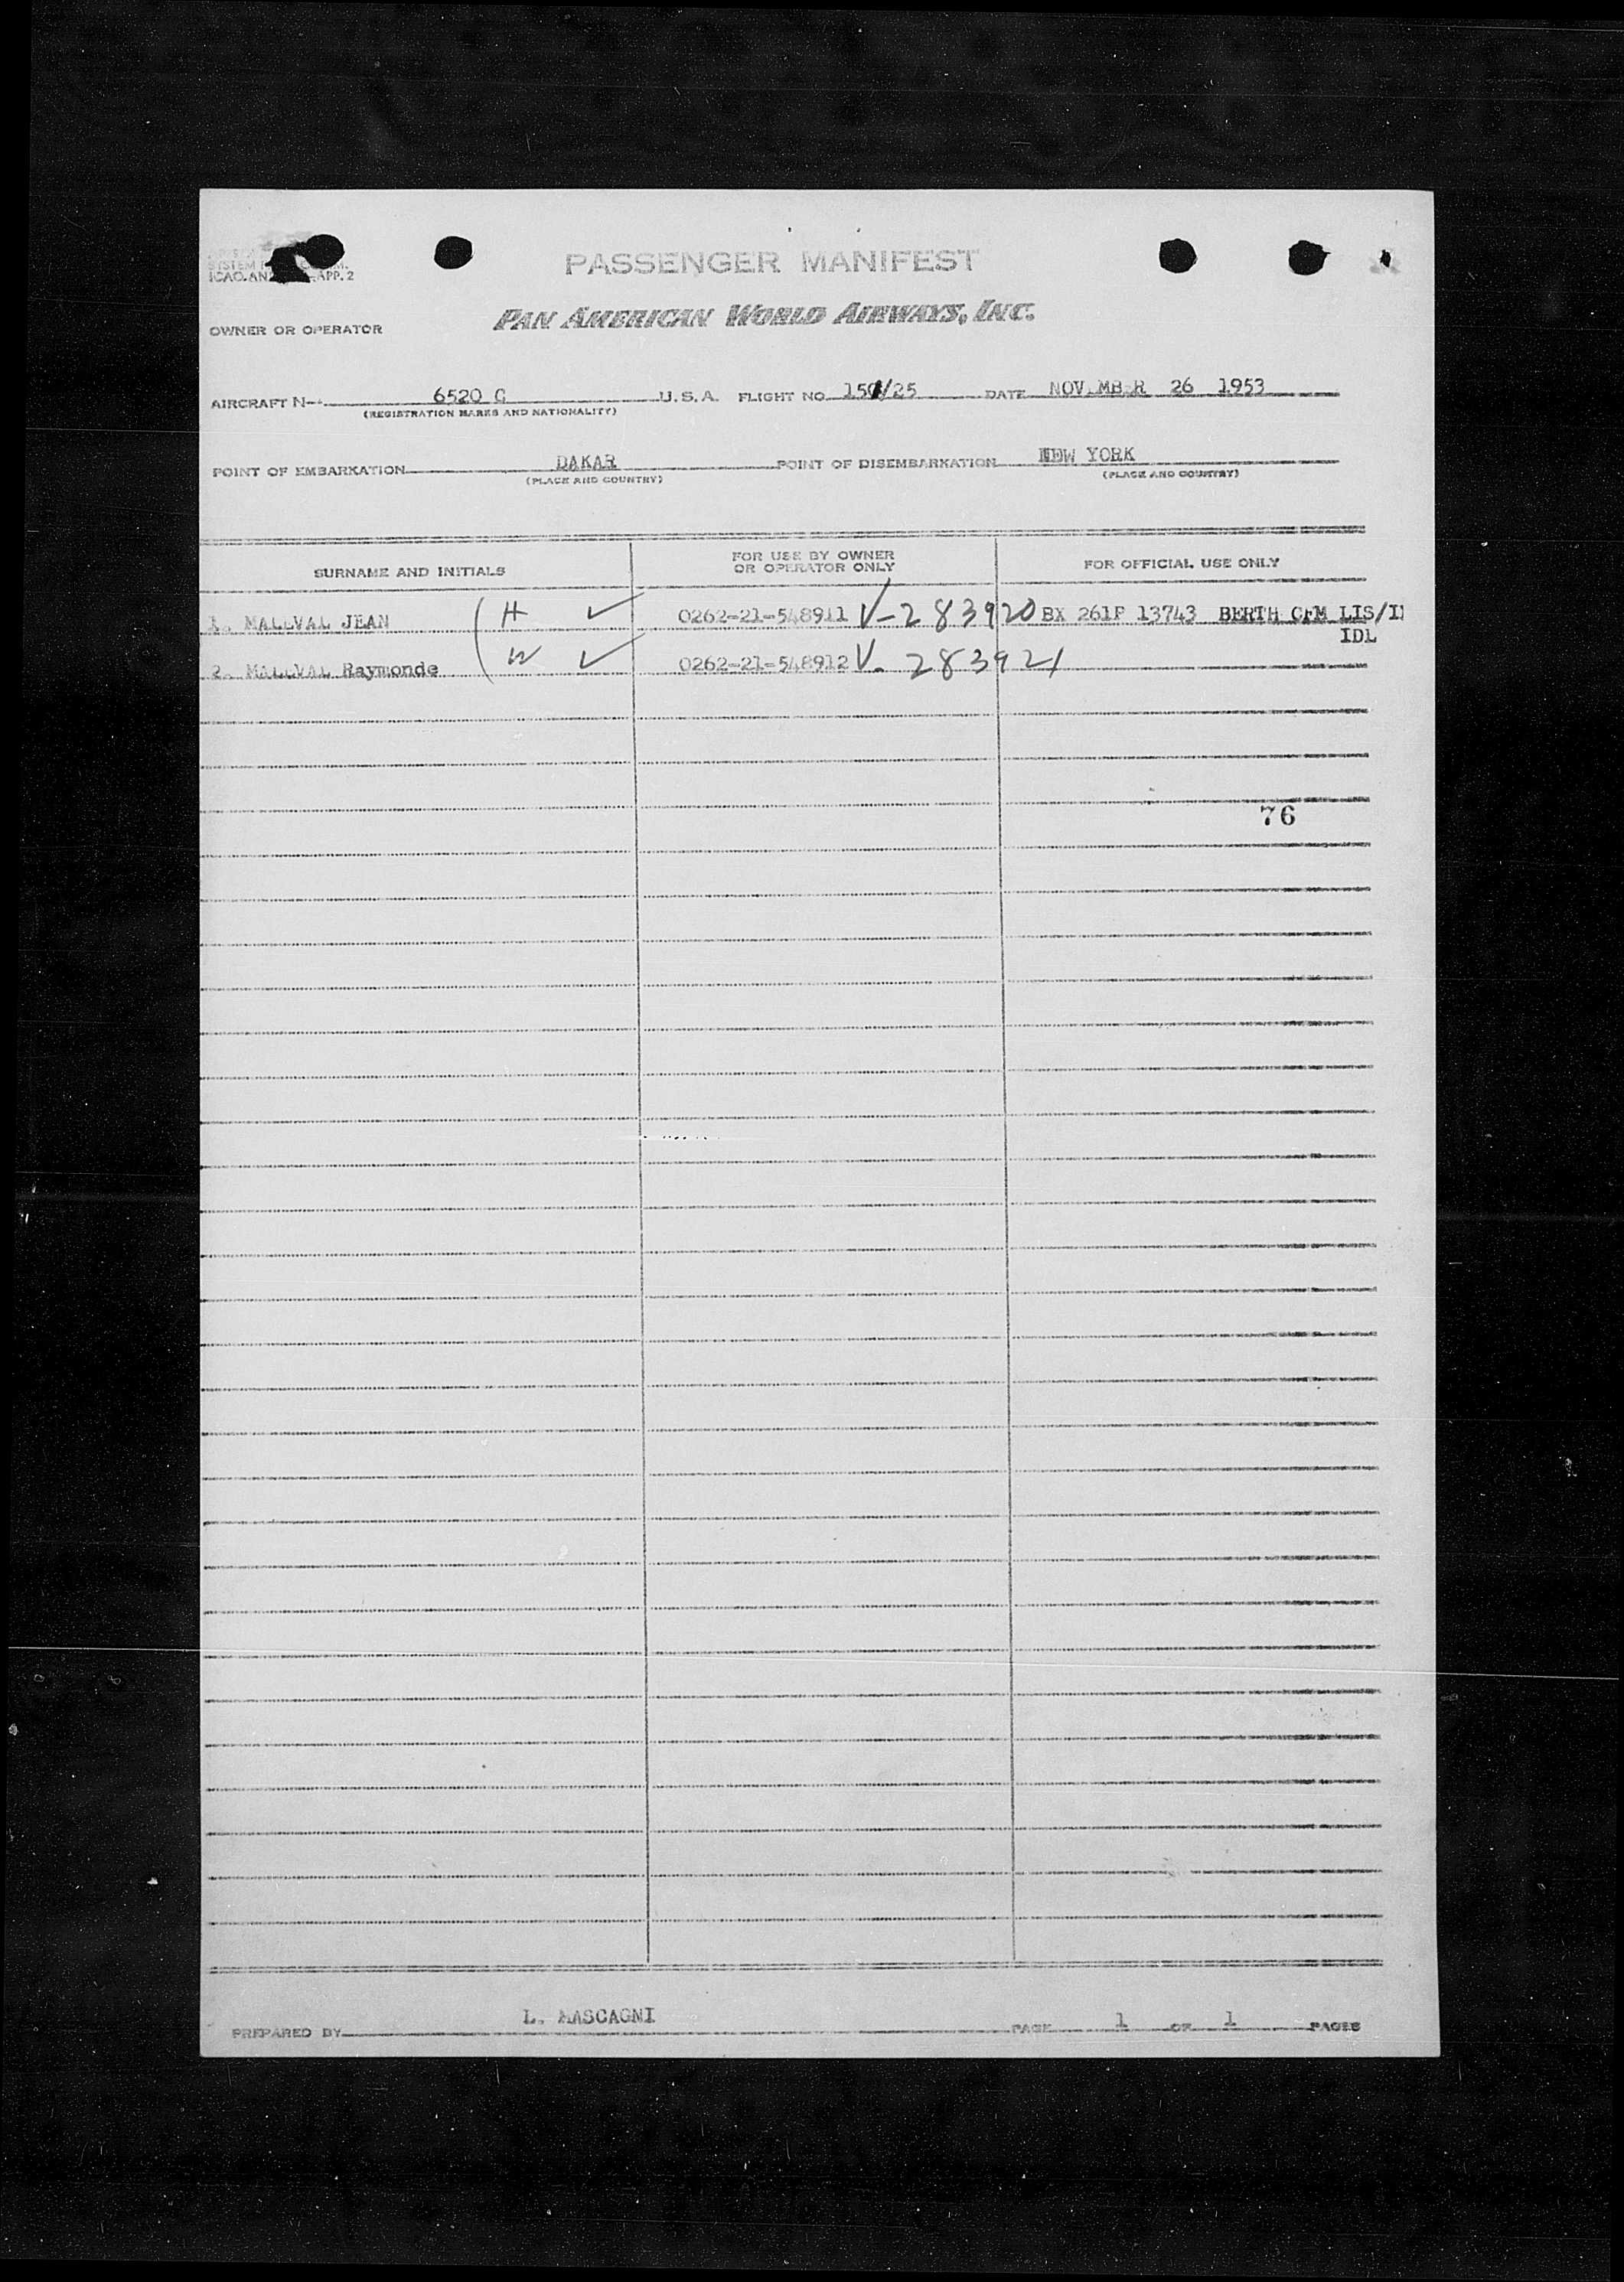 SYSTEM
ICAO. AN APP. 2
PASSENGER MANIFEST
PAN AMERICAN WORLD AIRWAYS, INC.
OWNER OR OPERATOR
AIRCRAFT N- 6520 C U.S.A. FLIGHT NO. /25 DATE NOVEMBER 26 1953
(REGISTRATION MARKS AND NATIONALITY)
POINT OF EMBARKATION DAKAR POINT OF DISEMBARKATION NEW YORK
(PLACE AND COUNTRY) (PLACE AND COUNTRY)
SURNAME AND INITIALS FOR USE BY OWNER OR OPERATOR ONLY FOR OFFICIAL USE ONLY
1. MALEVAL JEAN ( H ✓ 0262-21-548911 V-283920 BX 261F 13743 BERTH CFM LIS/
IDL
2. MALEVAL Raymonde W ✓ 0262-21-548912 V-283921
76
PREPARED BY L. MASCAGNI PAGE 1 OF 1 PAGES